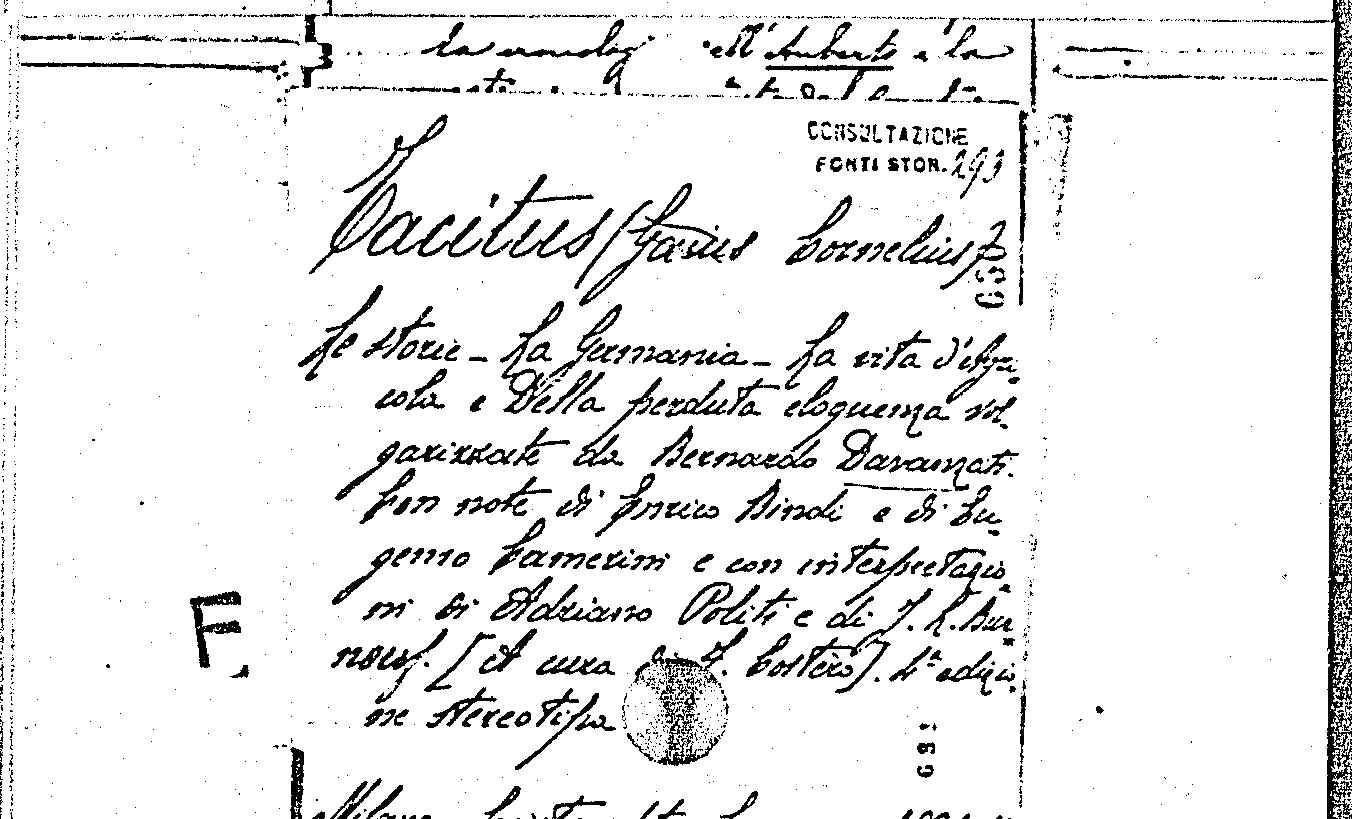 ell'Auberto e la
CONSULTAZIONE
FONTI STOR. 293
Tacitus (Gaius Cornelius)
Le storie - La Germania - La vita d'Agri-
cola e Della perduta eloquenza vol-
garizzate da Bernardo Davanzati.
Con note di Enrico Bindi e di Eu-
genio Camerini e con interpretazio-
ni di Adriano Politi e di J. L. Bur-
nouf. [A cura di F. Costèro]. 4ª edizio-
ne stereotipa
F.
Milano